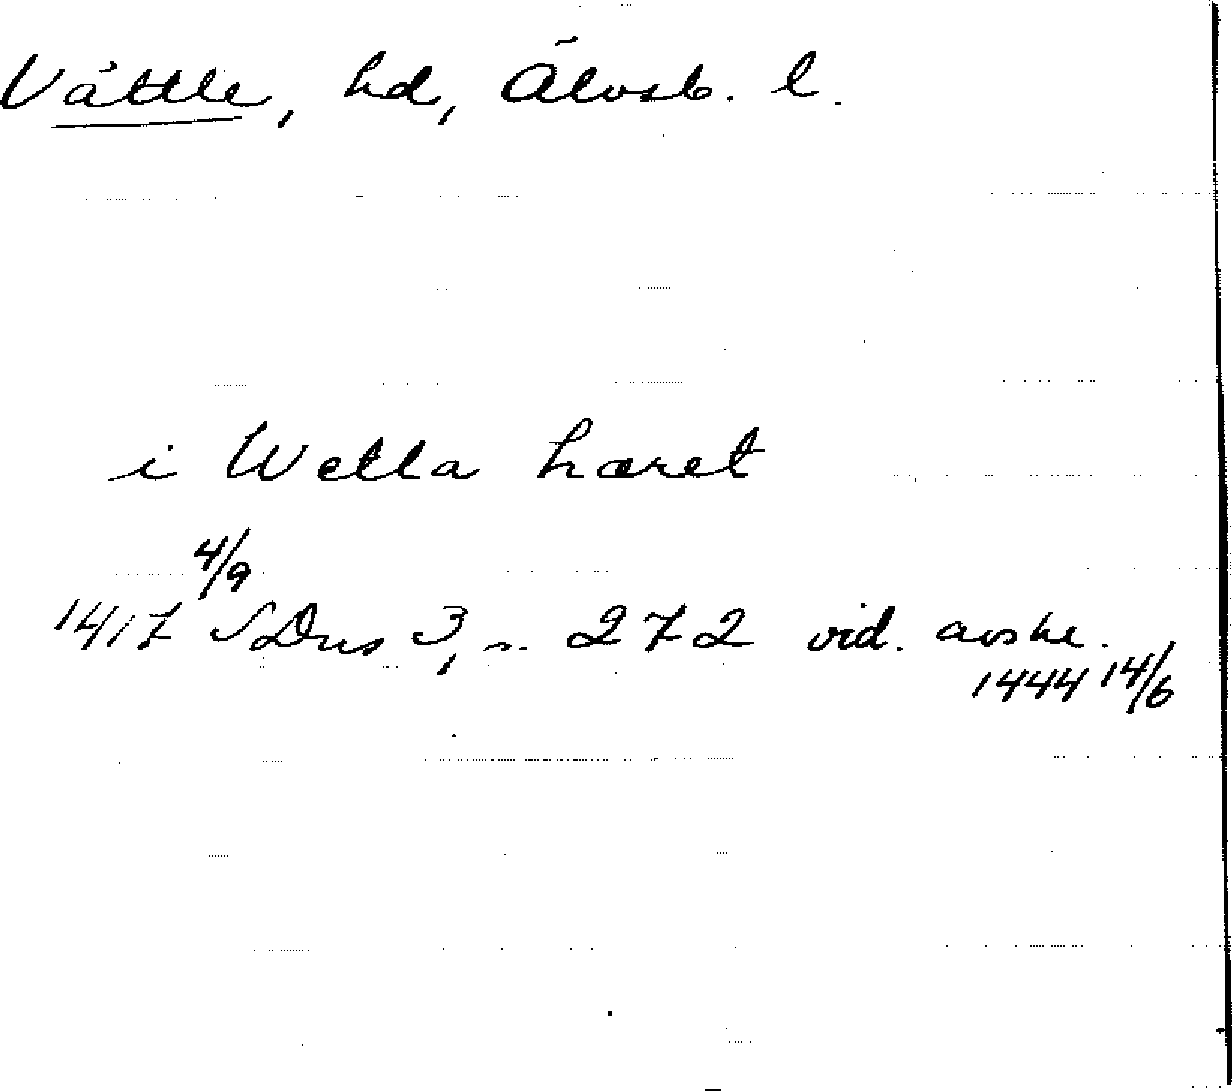 Vättle, hd, Älvsb. l.
i Wetla hæret
1417 4/9 SDns 3, n. 272 vid. avskr.
1444 14/6